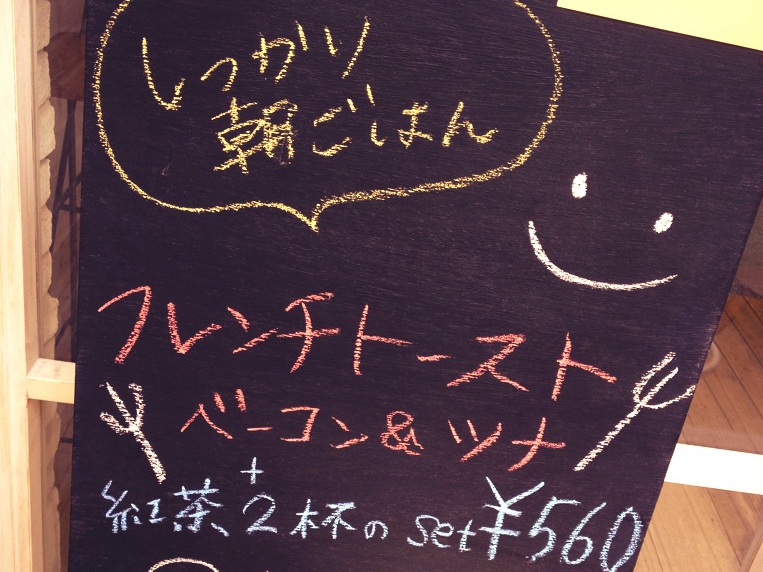 しっかり
朝ごはん
フレンチトースト
ベーコン&ツナ
+
紅茶2杯のset¥560